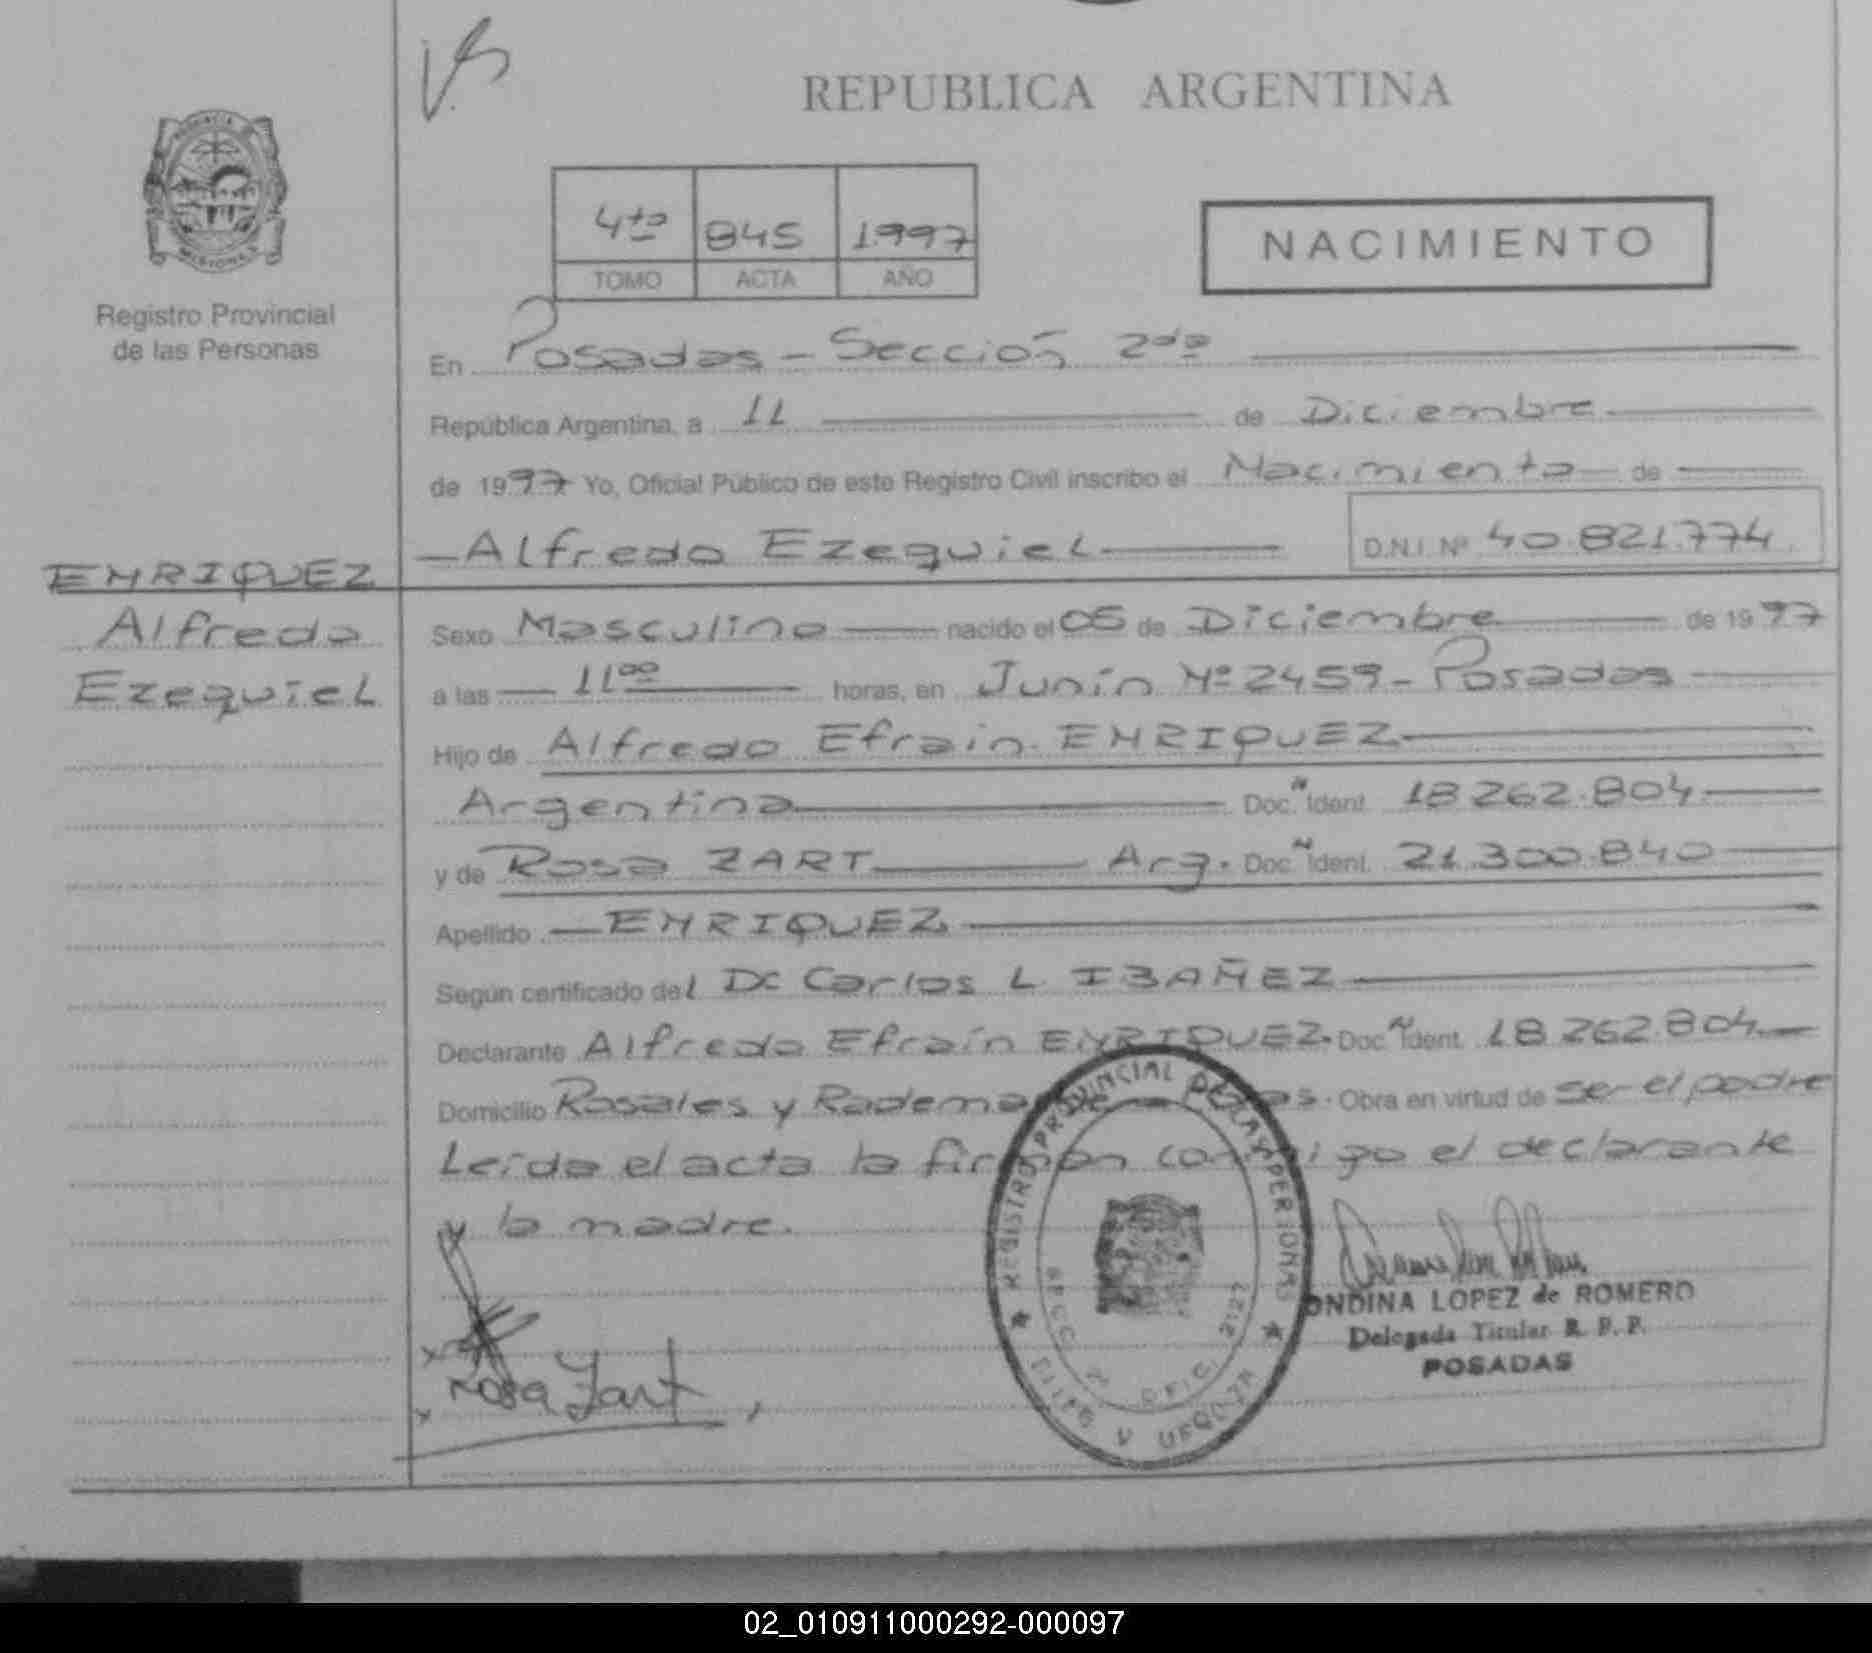 REPUBLICA ARGENTINA
PROVINCIA DE
MISIONES
Registro Provincial
de las Personas
4to 845 1997
TOMO ACTA AÑO
NACIMIENTO
En Posadas - Sección 2da
República Argentina, a 11 de Diciembre
de 1997 Yo, Oficial Público de este Registro Civil inscribo el Nacimiento de
Alfredo Ezequiel D.N.I. Nº 40.821.774
ENRIQUEZ
Alfredo
Ezequiel
Sexo Masculino nacido el 05 de Diciembre de 1997
a las 11 00 horas, en Junín Nº 2459 - Posadas
Hijo de Alfredo Efraín ENRIQUEZ
Argentina Doc. N Ident. 18.262.804
y de Rosa ZART Arg. Doc. N Ident. 21.300.840
Apellido ENRIQUEZ
Según certificado del Dr Carlos L IBAÑEZ
Declarante Alfredo Efraín ENRIQUEZ. Doc. N Ident. 18.262.804
Domicilio Rosales y Obra en virtud de ser el padre
Leída el acta la firman conmigo el declarante
y la madre.
REGISTRO PROVINCIAL DE LAS PERSONAS
ONDINA LOPEZ de ROMERO
Delegada Titular R. P. P.
POSADAS
x
x Rosa Zart
02_010911000292-000097